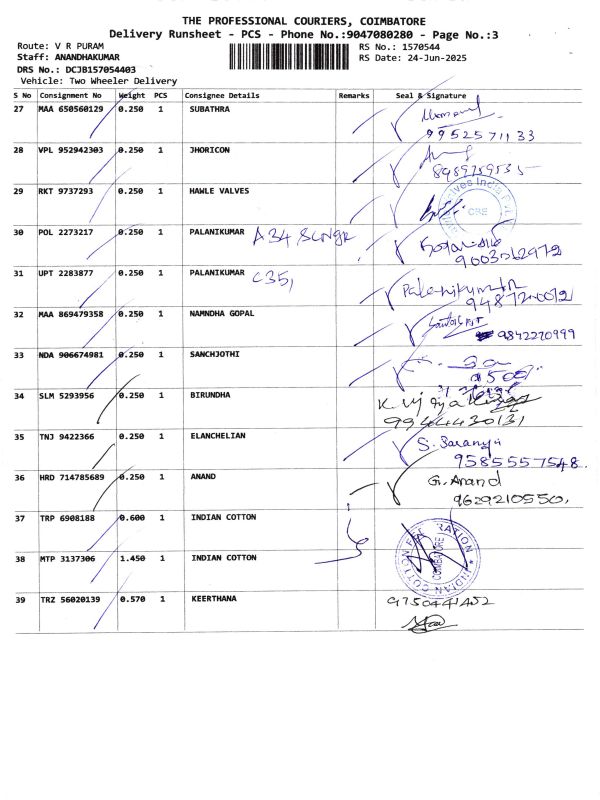 THE PROFESSIONAL COURIERS, COIMBATORE
Delivery Runsheet - PCS - Phone No.:9047080280 - Page No.:3
Route: V R PURAM RS No.: 1570544
Staff: ANANDHAKUMAR RS Date: 24-Jun-2025
DRS No.: DCJB157054403
Vehicle: Two Wheeler Delivery
S No Consignment No Weight PCS Consignee Details Remarks Seal & Signature
27 MAA 650560129 0.250 1 SUBATHRA
9952571133
28 VPL 952942303 0.250 1 JHORICON
8989759535
29 RKT 9737293 0.250 1 HAWLE VALVES
CBE
30 POL 2273217 0.250 1 PALANIKUMAR A34
9003562972
31 UPT 2283877 0.250 1 PALANIKUMAR C35,
Palanikumar
32 MAA 869479358 0.250 1 NAMNDHA GOPAL
9842220999
33 NDA 906674981 0.250 1 SANCHJOTHI
34 SLM 5293956 0.250 1 BIRUNDHA
9944430131
35 TNJ 9422366 0.250 1 ELANCHELIAN S. Saranya
9585557548.
36 HRD 714785689 0.250 1 ANAND G. Anand
9629210550,
37 TRP 6908188 0.600 1 INDIAN COTTON
38 MTP 3137306 1.450 1 INDIAN COTTON
INDIAN COTTON FEDERATION
COIMBATORE
39 TRZ 56020139 0.570 1 KEERTHANA 9750441452